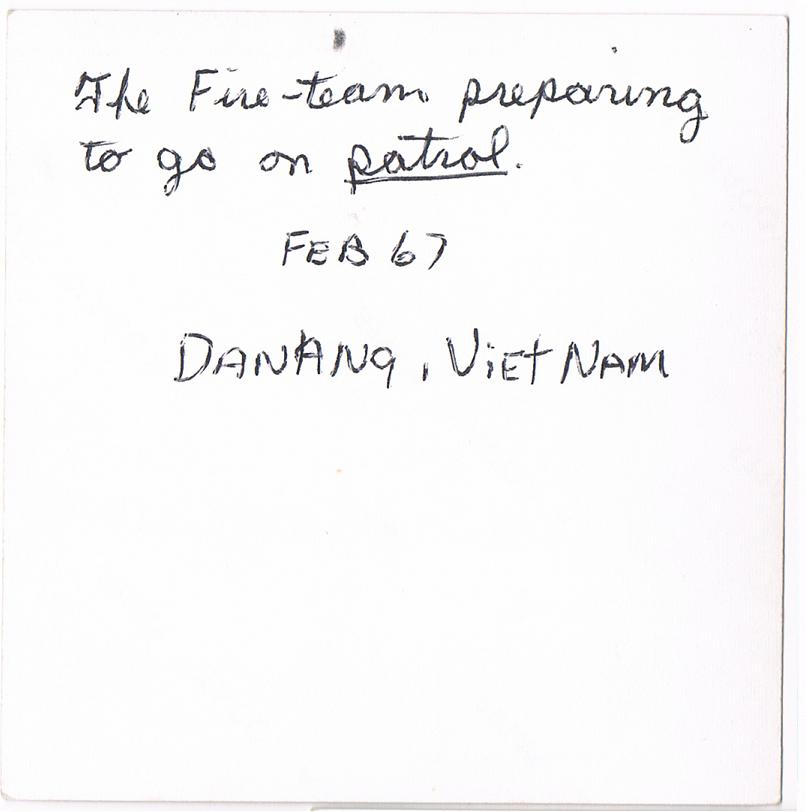 The Fire-team preparing
to go on patrol.
FEB 67
DANANG, VIET NAM